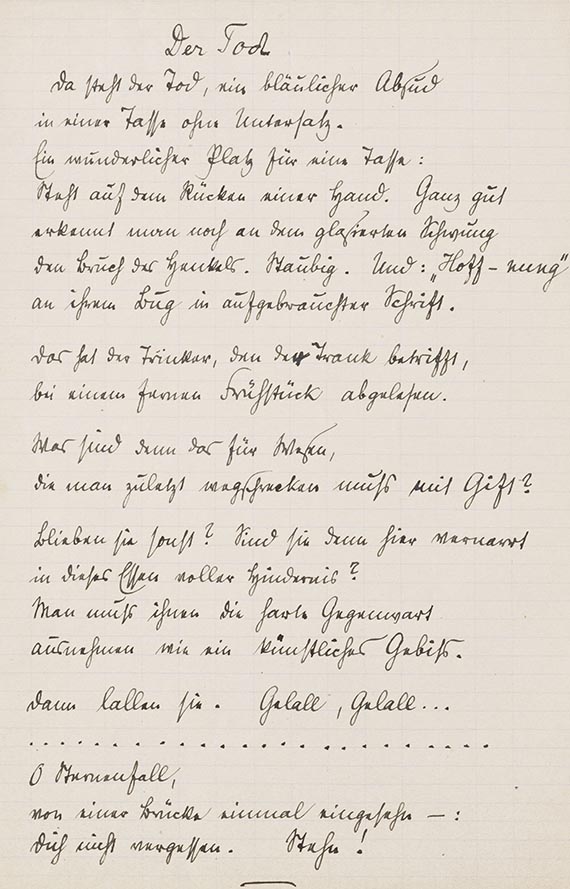 Der Tod
Da steht der Tod, ein bläulicher Absud
in einer Tasse ohne Untersatz.
Ein wunderlicher Platz für eine Tasse:
Steht auf dem Rücken einer Hand. Ganz gut
erkennt man noch an dem glasierten Schwung
den Bruch des Henkels. Staubig. Und: „Hoff-nung"
an ihrem Bug in aufgebrauchter Schrift.
Das hat der Trinker, den der Trank betrifft,
bei einem fernen Frühstück abgelesen.
Was sind denn das für Wesen,
die man zuletzt wegschrecken muß mit Gift?
Blieben sie sonst? Sind sie denn hier vernarrt
in dieses Essen voller Hindernis?
Man muß ihnen die harte Gegenwart
ausnehmen wie ein künstliches Gebiß.
Dann lallen sie. Gelall, Gelall...
. . . . . . . . . . . . . . . . . . . . . . . . . .
O Sternenfall,
von einer Brücke einmal eingesehn —:
Dich nicht vergessen. Stehn!